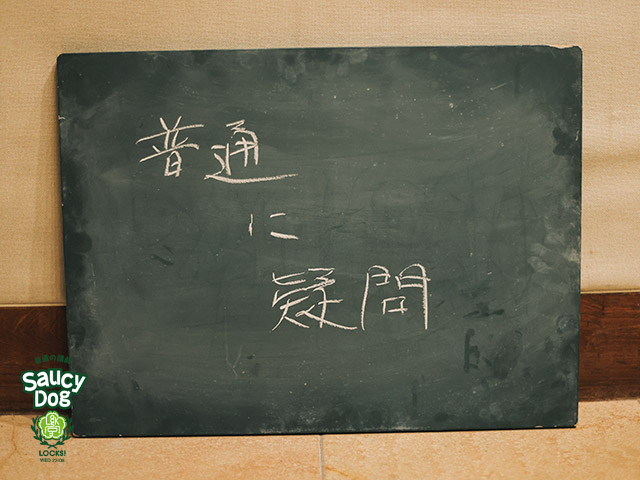 普通
に
疑問
SAUCY
DOG
LOCKS!